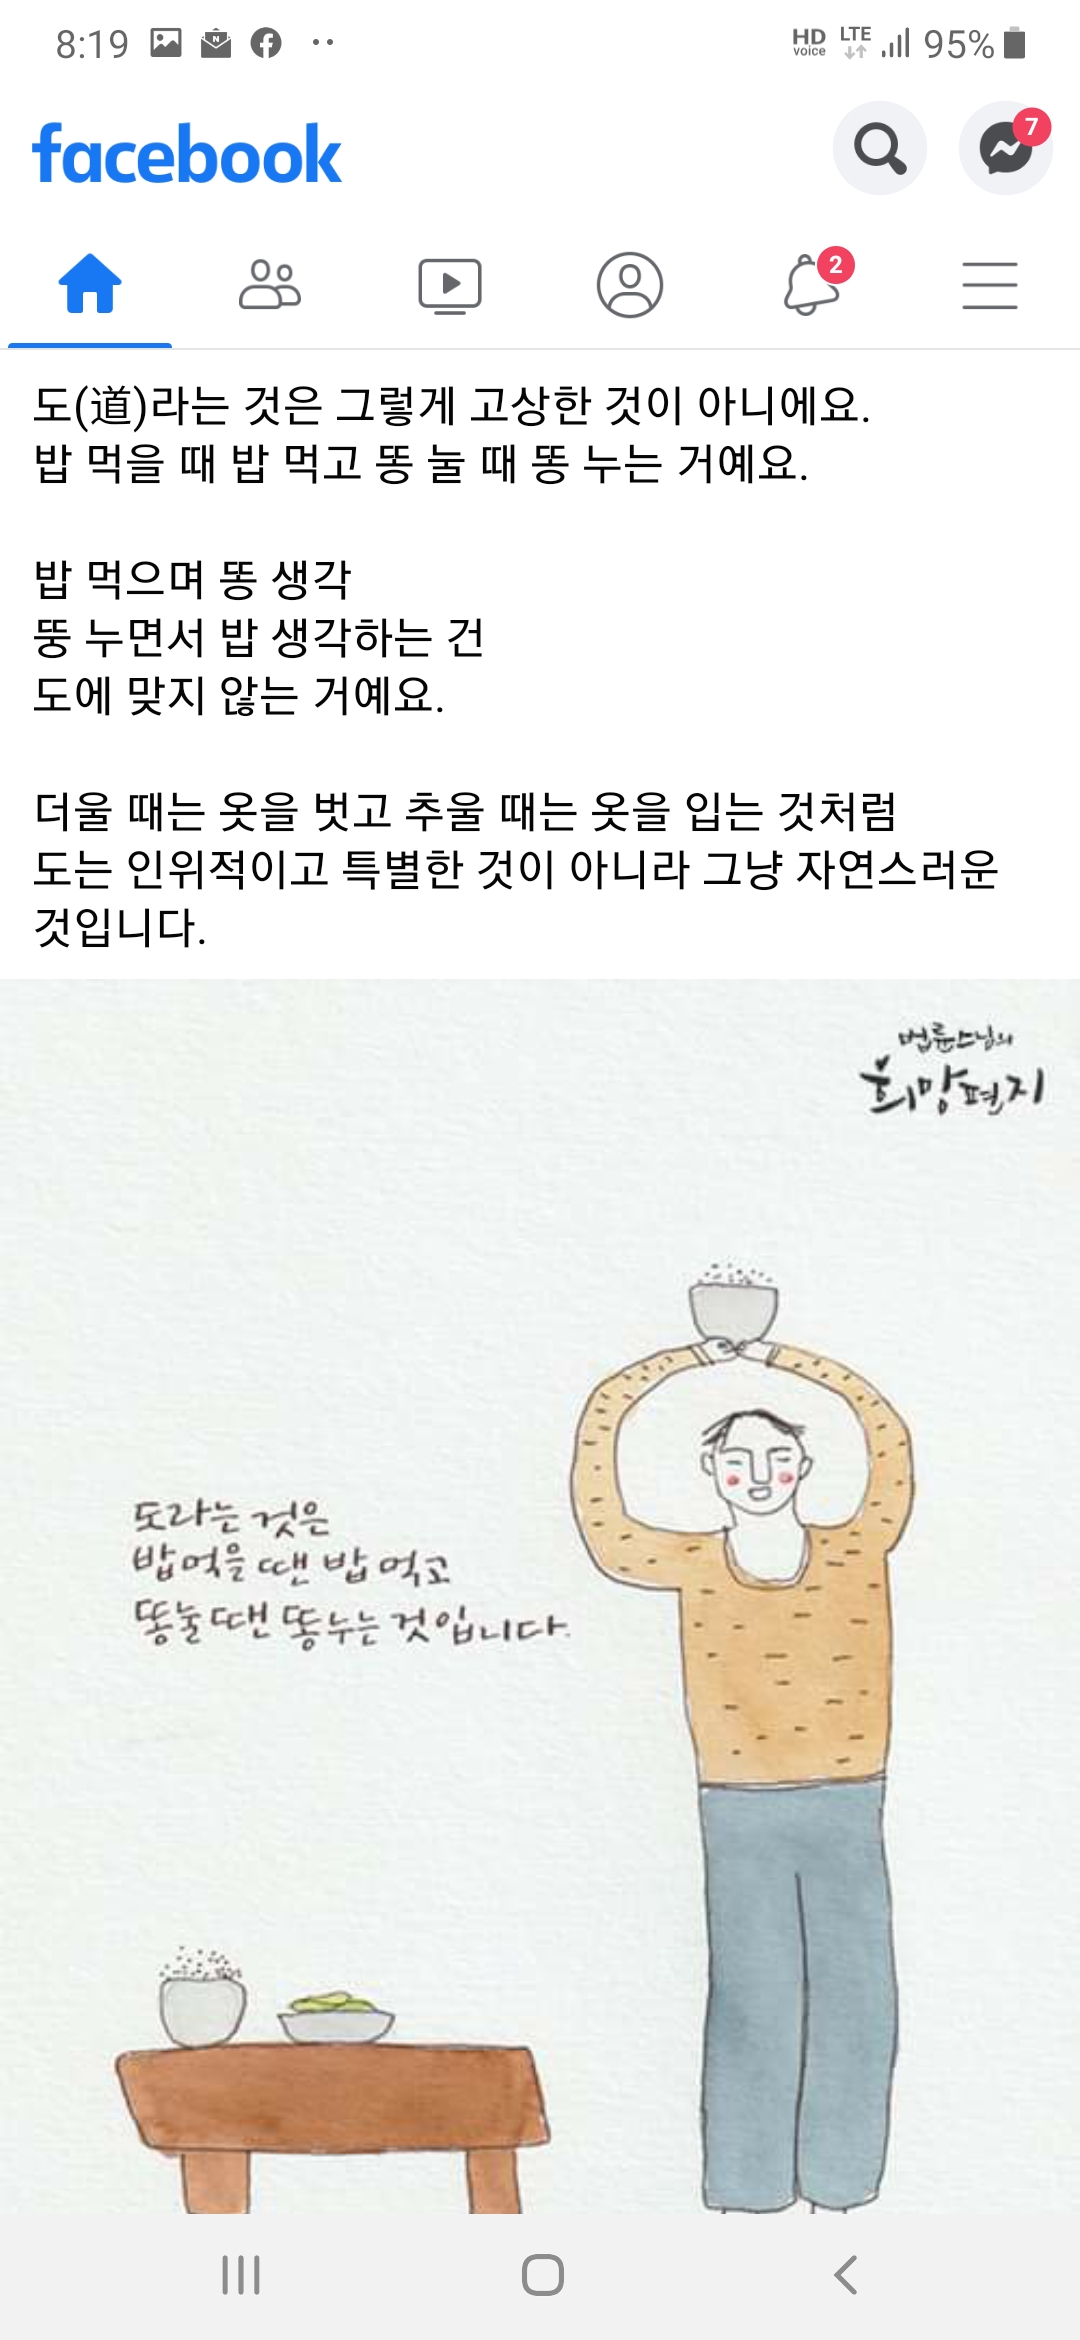 8:19
HD voice LTE 95%
facebook
7
2
도(道)라는 것은 그렇게 고상한 것이 아니에요.
밥 먹을 때 밥 먹고 똥 눌 때 똥 누는 거예요.
밥 먹으며 똥 생각
뚱 누면서 밥 생각하는 건
도에 맞지 않는 거예요.
더울 때는 옷을 벗고 추울 때는 옷을 입는 것처럼
도는 인위적이고 특별한 것이 아니라 그냥 자연스러운
것입니다.
법륜스님의
희망편지
도라는 것은
밥먹을 땐 밥 먹고
똥눌 땐 똥누는 것입니다.